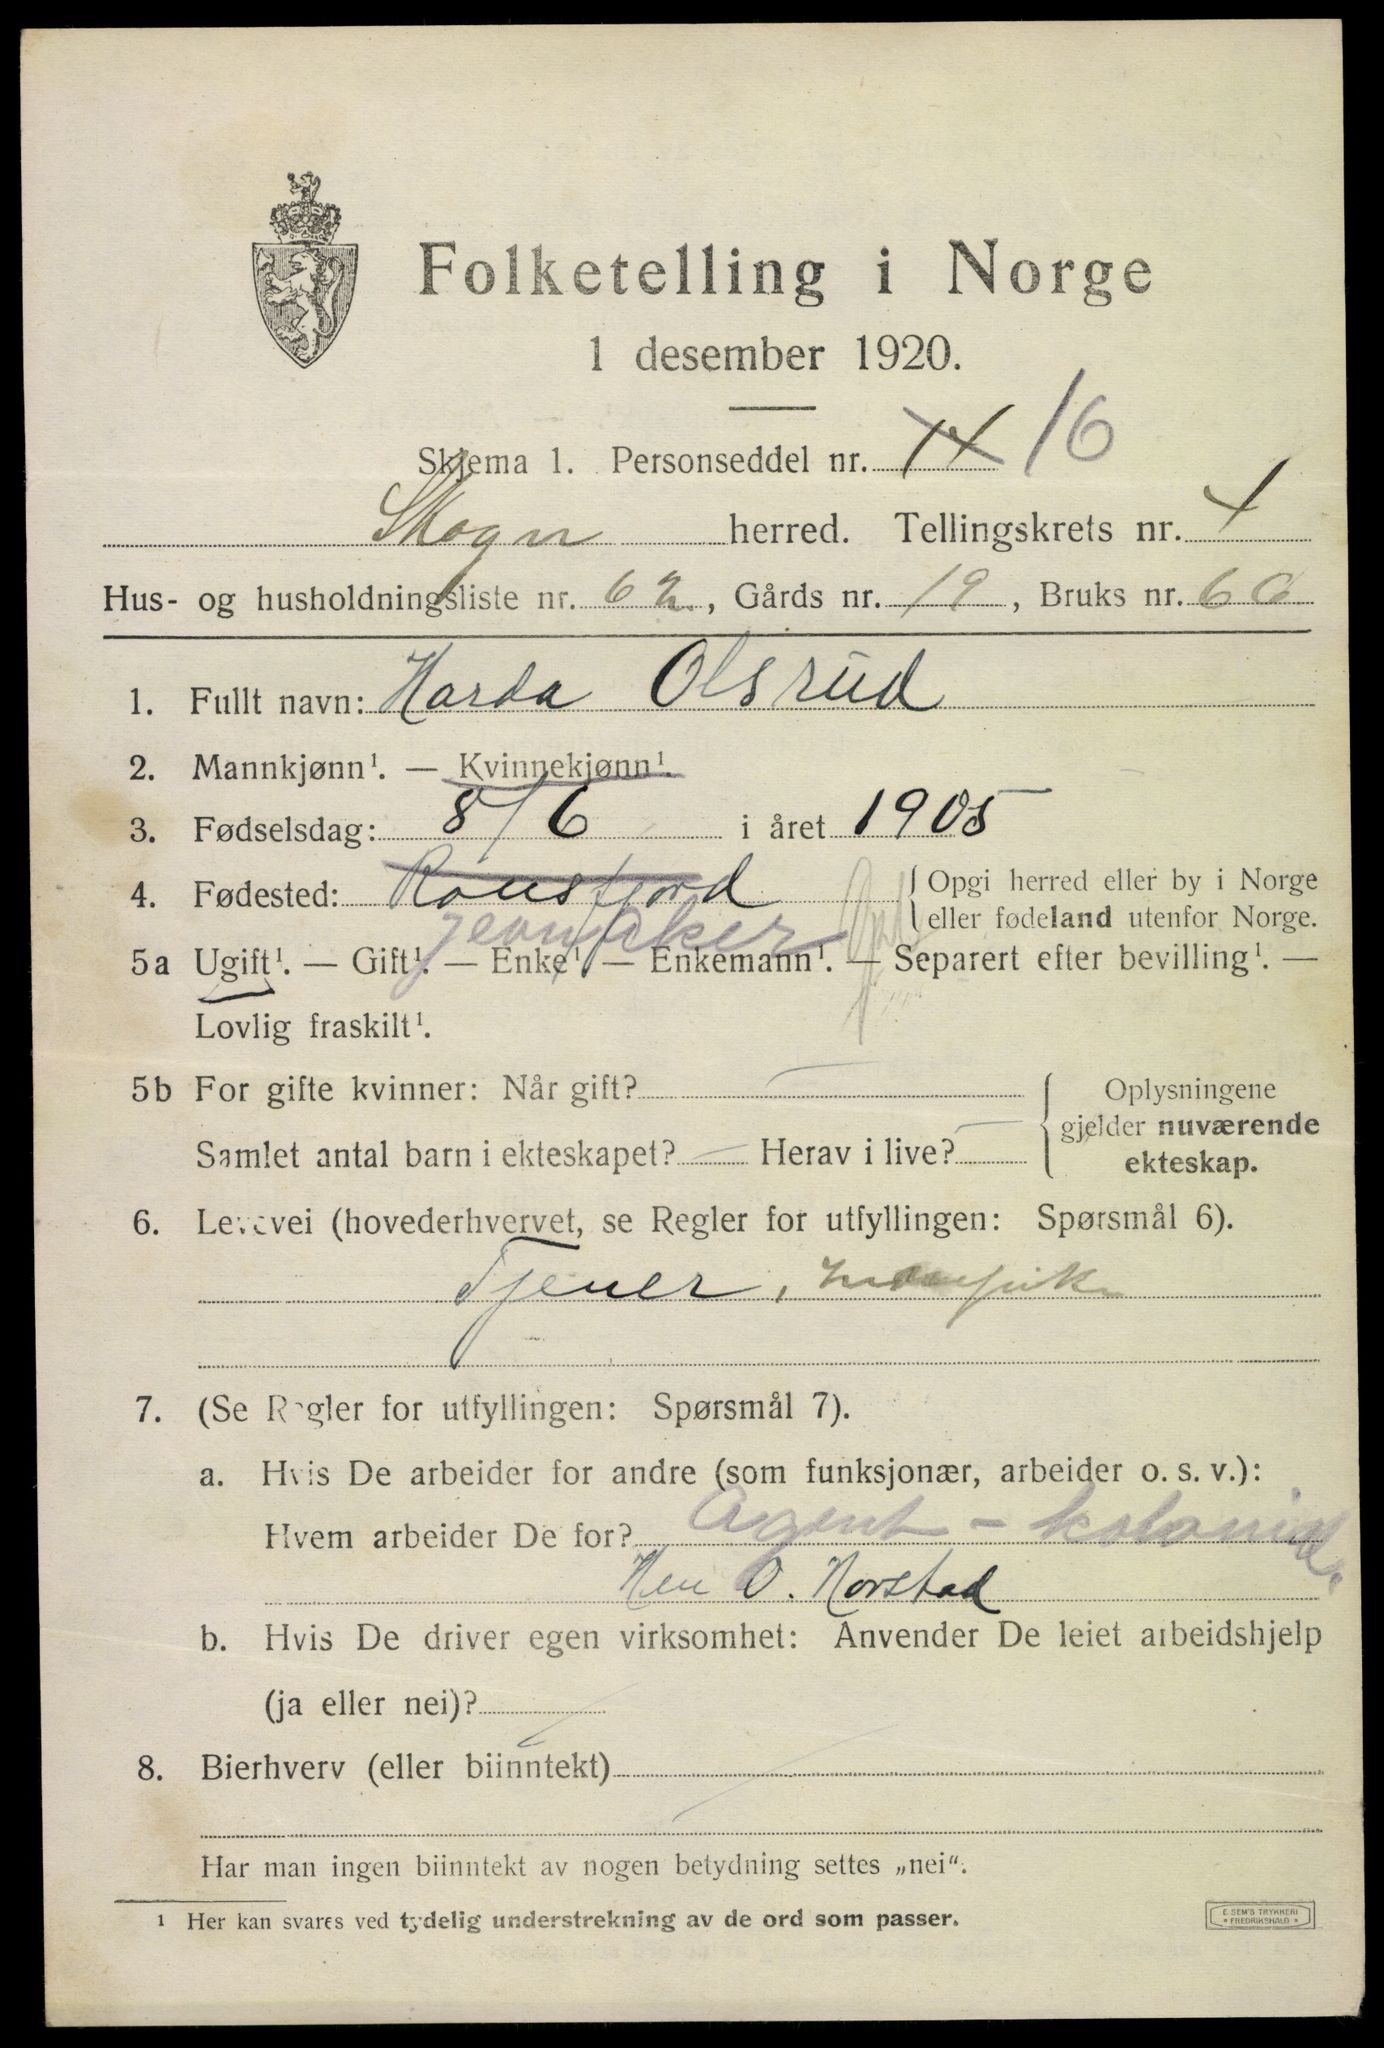 Folketelling i Norge
1 desember 1920.
Skjema 1. Personseddel nr. 14 16
Skogn herred. Tellingskrets nr. 4
Hus- og husholdningsliste nr. 62, Gårds nr. 19, Bruks nr. 60
1. Fullt navn: Harda Olsrud
2. Mannkjønn¹. — Kvinnekjønn¹.
3. Fødselsdag: 8/6 i året 1905
4. Fødested: Rønsfjord Opgi herred eller by i Norge
eller fødeland utenfor Norge.
Jevnaker
5a Ugift¹. — Gift¹. — Enke¹. — Enkemann¹. — Separert efter bevilling¹. —
Lovlig fraskilt¹.
5b For gifte kvinner: Når gift? — Oplysningene
gjelder nuværende
ekteskap.
Samlet antal barn i ekteskapet? — Herav i live? —
6. Levevei (hovederhvervet, se Regler for utfyllingen: Spørsmål 6).
Tjener,
7. (Se Regler for utfyllingen: Spørsmål 7).
a. Hvis De arbeider for andre (som funksjonær, arbeider o. s. v.):
Hvem arbeider De for? Agent – kolonial.
O. Norstad
b. Hvis De driver egen virksomhet: Anvender De leiet arbeidshjelp
(ja eller nei)?
8. Bierhverv (eller biinntekt)
Har man ingen biinntekt av nogen betydning settes „nei“.
¹ Her kan svares ved tydelig understrekning av de ord som passer.
E. SEM'S TRYKKERI
* FREDRIKSHALD *